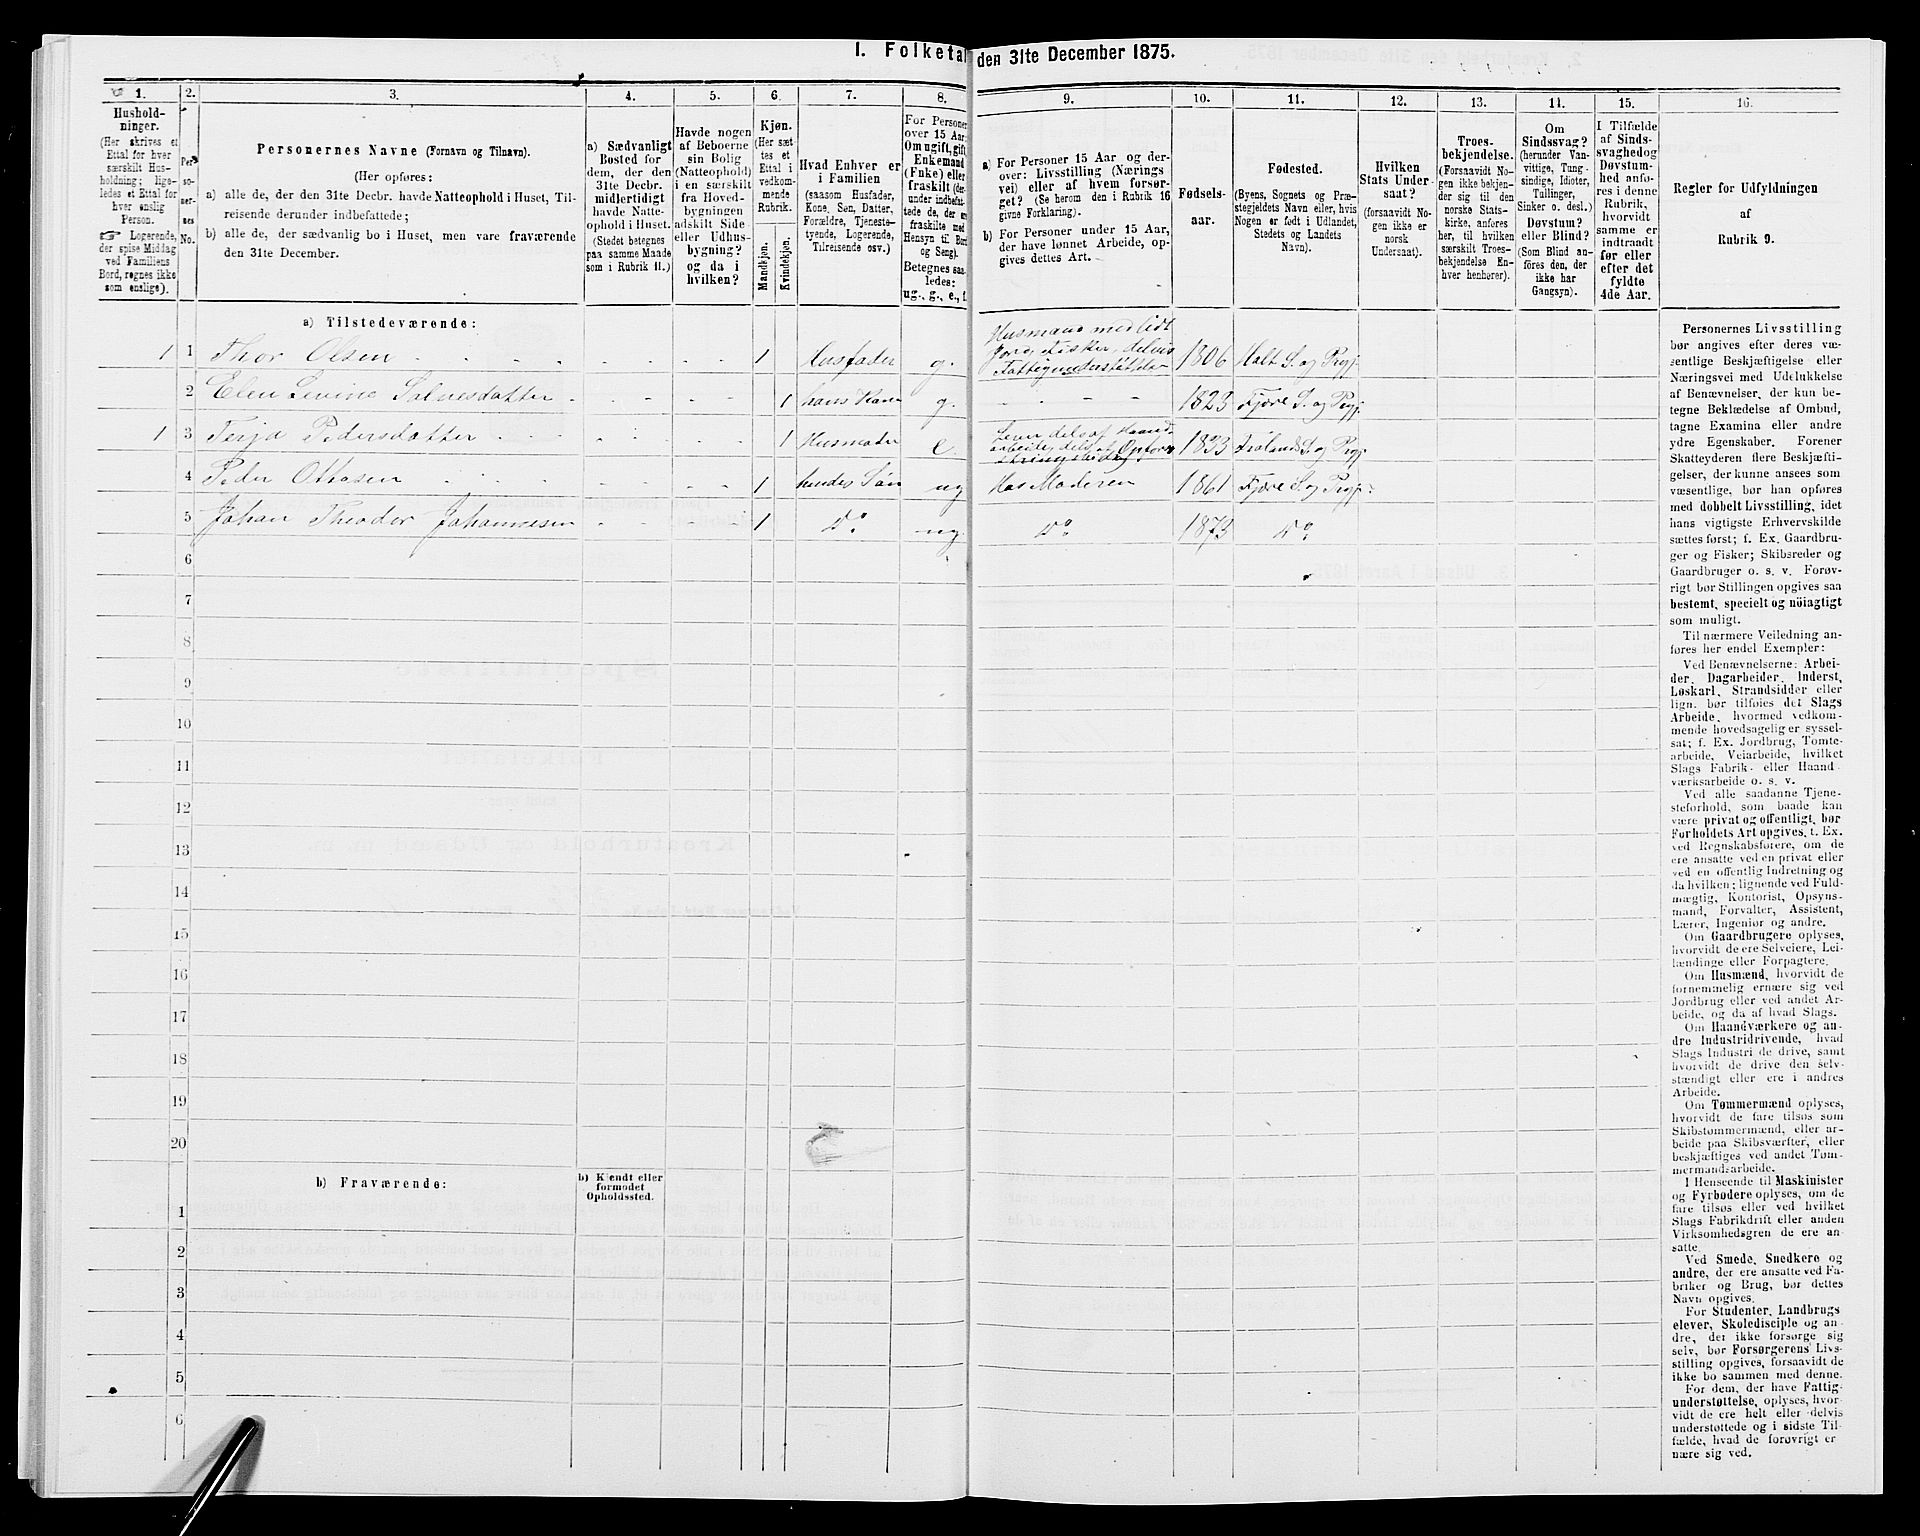 I. Folketal den 31te December 1875.
1. 2. 3. 4. 5. 6. 7. 8. 9. 10. 11. 12. 13. 14. 15. 16.
Hushold-
ninger.
(Her skrives et
Ettal for hver
særskilt Hus-
holdning; lige-
ledes et Ettal for
hver enslig
Person.
☞ Logerende,
der spise Middag
ved Familiens
Bord, regnes ikke
som enslige).
Per-
so-
ner-
nes
No.
Personernes Navne (Fornavn og Tilnavn).
(Her opføres:
a) alle de, der den 31te Decbr. havde Natteophold i Huset, Til-
reisende derunder indbefattede;
b) alle de, der sædvanlig bo i Huset, men vare fraværende
den 31te December.
a) Sædvanligt
Bosted for
dem, der den
31te Decbr.
midlertidigt
havde Natte-
ophold i Huset.
(Stedet betegnes
paa samme Maade
som i Rubrik 11.)
Havde nogen
af Beboerne
sin Bolig
(Natteophold)
i en særskilt
fra Hoved-
bygningen
adskilt Side-
eller Udhus-
bygning?
og da i
hvilken?
Kjøn.
(Her sæt-
tes et
Ettal i
vedkom-
mende
Rubrik.
Mandkjøn.
Kvindekjøn.
Hvad Enhver er
i Familien
(saasom Husfader,
Kone, Søn, Datter,
Forældre, Tjeneste-
tyende, Logerende,
Tilreisende osv.)
For Personer
over 15 Aar:
Om ugift, gift,
Enkemand
(Enke) eller
fraskilt (der-
under indbefat-
tede de, der ere
fraskilte med
Hensyn til Bord
og Seng).
Betegnes saa-
ledes:
ug., g., e., f.
a) For Personer 15 Aar og der-
over: Livsstilling (Nærings-
vei) eller af hvem forsør-
get? (Se herom den i Rubrik 16
givne Forklaring).
b) For Personer under 15 Aar,
der have lønnet Arbeide, op-
gives dettes Art.
Fødsels-
aar.
Fødested.
(Byens, Sognets og Præ-
stegjeldets Navn eller, hvis
Nogen er født i Udlandet,
Stedets og Landets
Navn).
Hvilken
Stats Under-
saat?
(forsaavidt No-
gen ikke er
norsk
Undersaat).
Troes-
bekjendelse.
(Forsaavidt No-
gen ikke bekjen-
der sig til den
norske Stats-
kirke, anføres
her, til hvilken
særskilt Troes-
bekjendelse En-
hver henhører).
Om
Sindssvag?
(herunder Van-
vittige, Tung-
sindige, Idioter,
Tullinger,
Sinker o. desl.)
Døvstum?
eller Blind?
(Som Blind an-
føres den, der
ikke har
Gangsyn).
I Tilfælde
af Sinds-
svaghed og
Døvstum-
hed anfø-
res i denne
Rubrik,
hvorvidt
samme er
indtraadt
før eller
efter det
fyldte
4de Aar.
Regler for Udfyldningen
af
Rubrik 9.
a) Tilstedeværende:
1 1 Thor Olsen 1 Husfader g. Husmand med lidt
Jord, Fisker, delvis
Fattigunderstøttelse 1806 Holt S. og Prgj.
2 Elen Sevine Salvesdatter 1 hans Kone g. 1823 Fjære S. og Prgj.
1 3 Terja Pedersdatter 1 Husmoder e. Lever dels af Haand-
arbeide, dels af 1833 Frolands S. og Prgj.
4 Peder Ottosen 1 hendes Søn ug Hos Moderen 1861 Fjære S. og Prgj.
5 Johan Theodor Johannesen 1 Do ug. Do 1873 Do
6
7
8
9
10
11
12
13
14
15
16
17
18
19
20
b) Fraværende:
b) Kjendt eller
formodet
Opholdssted.
1
2
3
4
5
6
Personernes Livsstilling
bør angives efter deres væ-
sentlige Beskjæftigelse eller
Næringsvei med Udelukkelse
af Benævnelser, der kun be-
tegne Beklædelse af Ombud,
tagne Examina eller andre
ydre Egenskaber. Forener
Skatteyderen flere Beskjæfti-
gelser, der kunne ansees som
væsentlige, bør han opføres
med dobbelt Livsstilling, idet
hans vigtigste Erhvervskilde
sættes først; f. Ex. Gaardbru-
ger og Fisker; Skibsreder og
Gaardbruger o. s. v. Forøv-
rigt bør Stillingen opgives saa
bestemt, specielt og nöiagtigt
som muligt.
Til nærmere Veiledning an-
føres her endel Exempler:
Ved Benævnelserne: Arbei-
der, Dagarbeider, Inderst,
Løskarl, Strandsidder eller
lign. bør tilføies det Slags
Arbeide, hvormed vedkom-
mende hovedsagelig er syssel-
sat; f. Ex. Jordbrug, Tomte-
arbeide, Veiarbeide, hvilket
Slags Fabrik- eller Haand-
værksarbeide o. s. v.
Ved alle saadanne Tjene-
steforhold, som baade kan
være privat og offentligt, bør
Forholdets Art opgives, t. Ex.
ved Regnskabsførere, om de
ere ansatte ved en privat eller
ved en offentlig Indretning og
da hvilken; lignende ved Fuld-
mægtig, Kontorist, Opsyns-
mand, Forvalter, Assistent,
Lærer, Ingeniør og andre.
Om Gaardbrugere oplyses,
hvorvidt de ere Selveiere, Lei-
lændinge eller Forpagtere.
Om Husmænd, hvorvidt de
fornemmelig ernære sig ved
Jordbrug eller ved andet Ar-
beide, og da af hvad Slags.
Om Haandværkere og an-
dre Industridrivende, hvad
Slags Industri de drive, samt
hvorvidt de drive den selv-
stændigt eller ere i andres
Arbeide.
Om Tømmermænd oplyses,
hvorvidt de fare tilsøs som
Skibstømmermænd, eller ar-
beide paa Skibsværfter, eller
beskjæftiges ved andet Tøm-
mermandsarbeide.
I Henseende til Maskinister
og Fyrbødere oplyses, om de
fare tilsøs eller ved hvilket
Slags Fabrikdrift eller anden
Virksomhedsgren de ere an-
satte.
Ved Smede, Snedkere og
andre, der ere ansatte ved Fa-
briker og Brug, bør dettes
Navn opgives.
For Studenter, Landbrugs-
elever, Skoledisciple og an-
dre, der ikke forsørge sig
selv, bør Forsørgerens Livs-
stilling opgives, forsaavidt de
ikke bo sammen med denne.
For dem, der have Fattig-
understøttelse, oplyses, hvor-
vidt de ere helt eller delvis
understøttede og i sidste Til-
fælde, hvad de forøvrigt er-
nære sig ved.